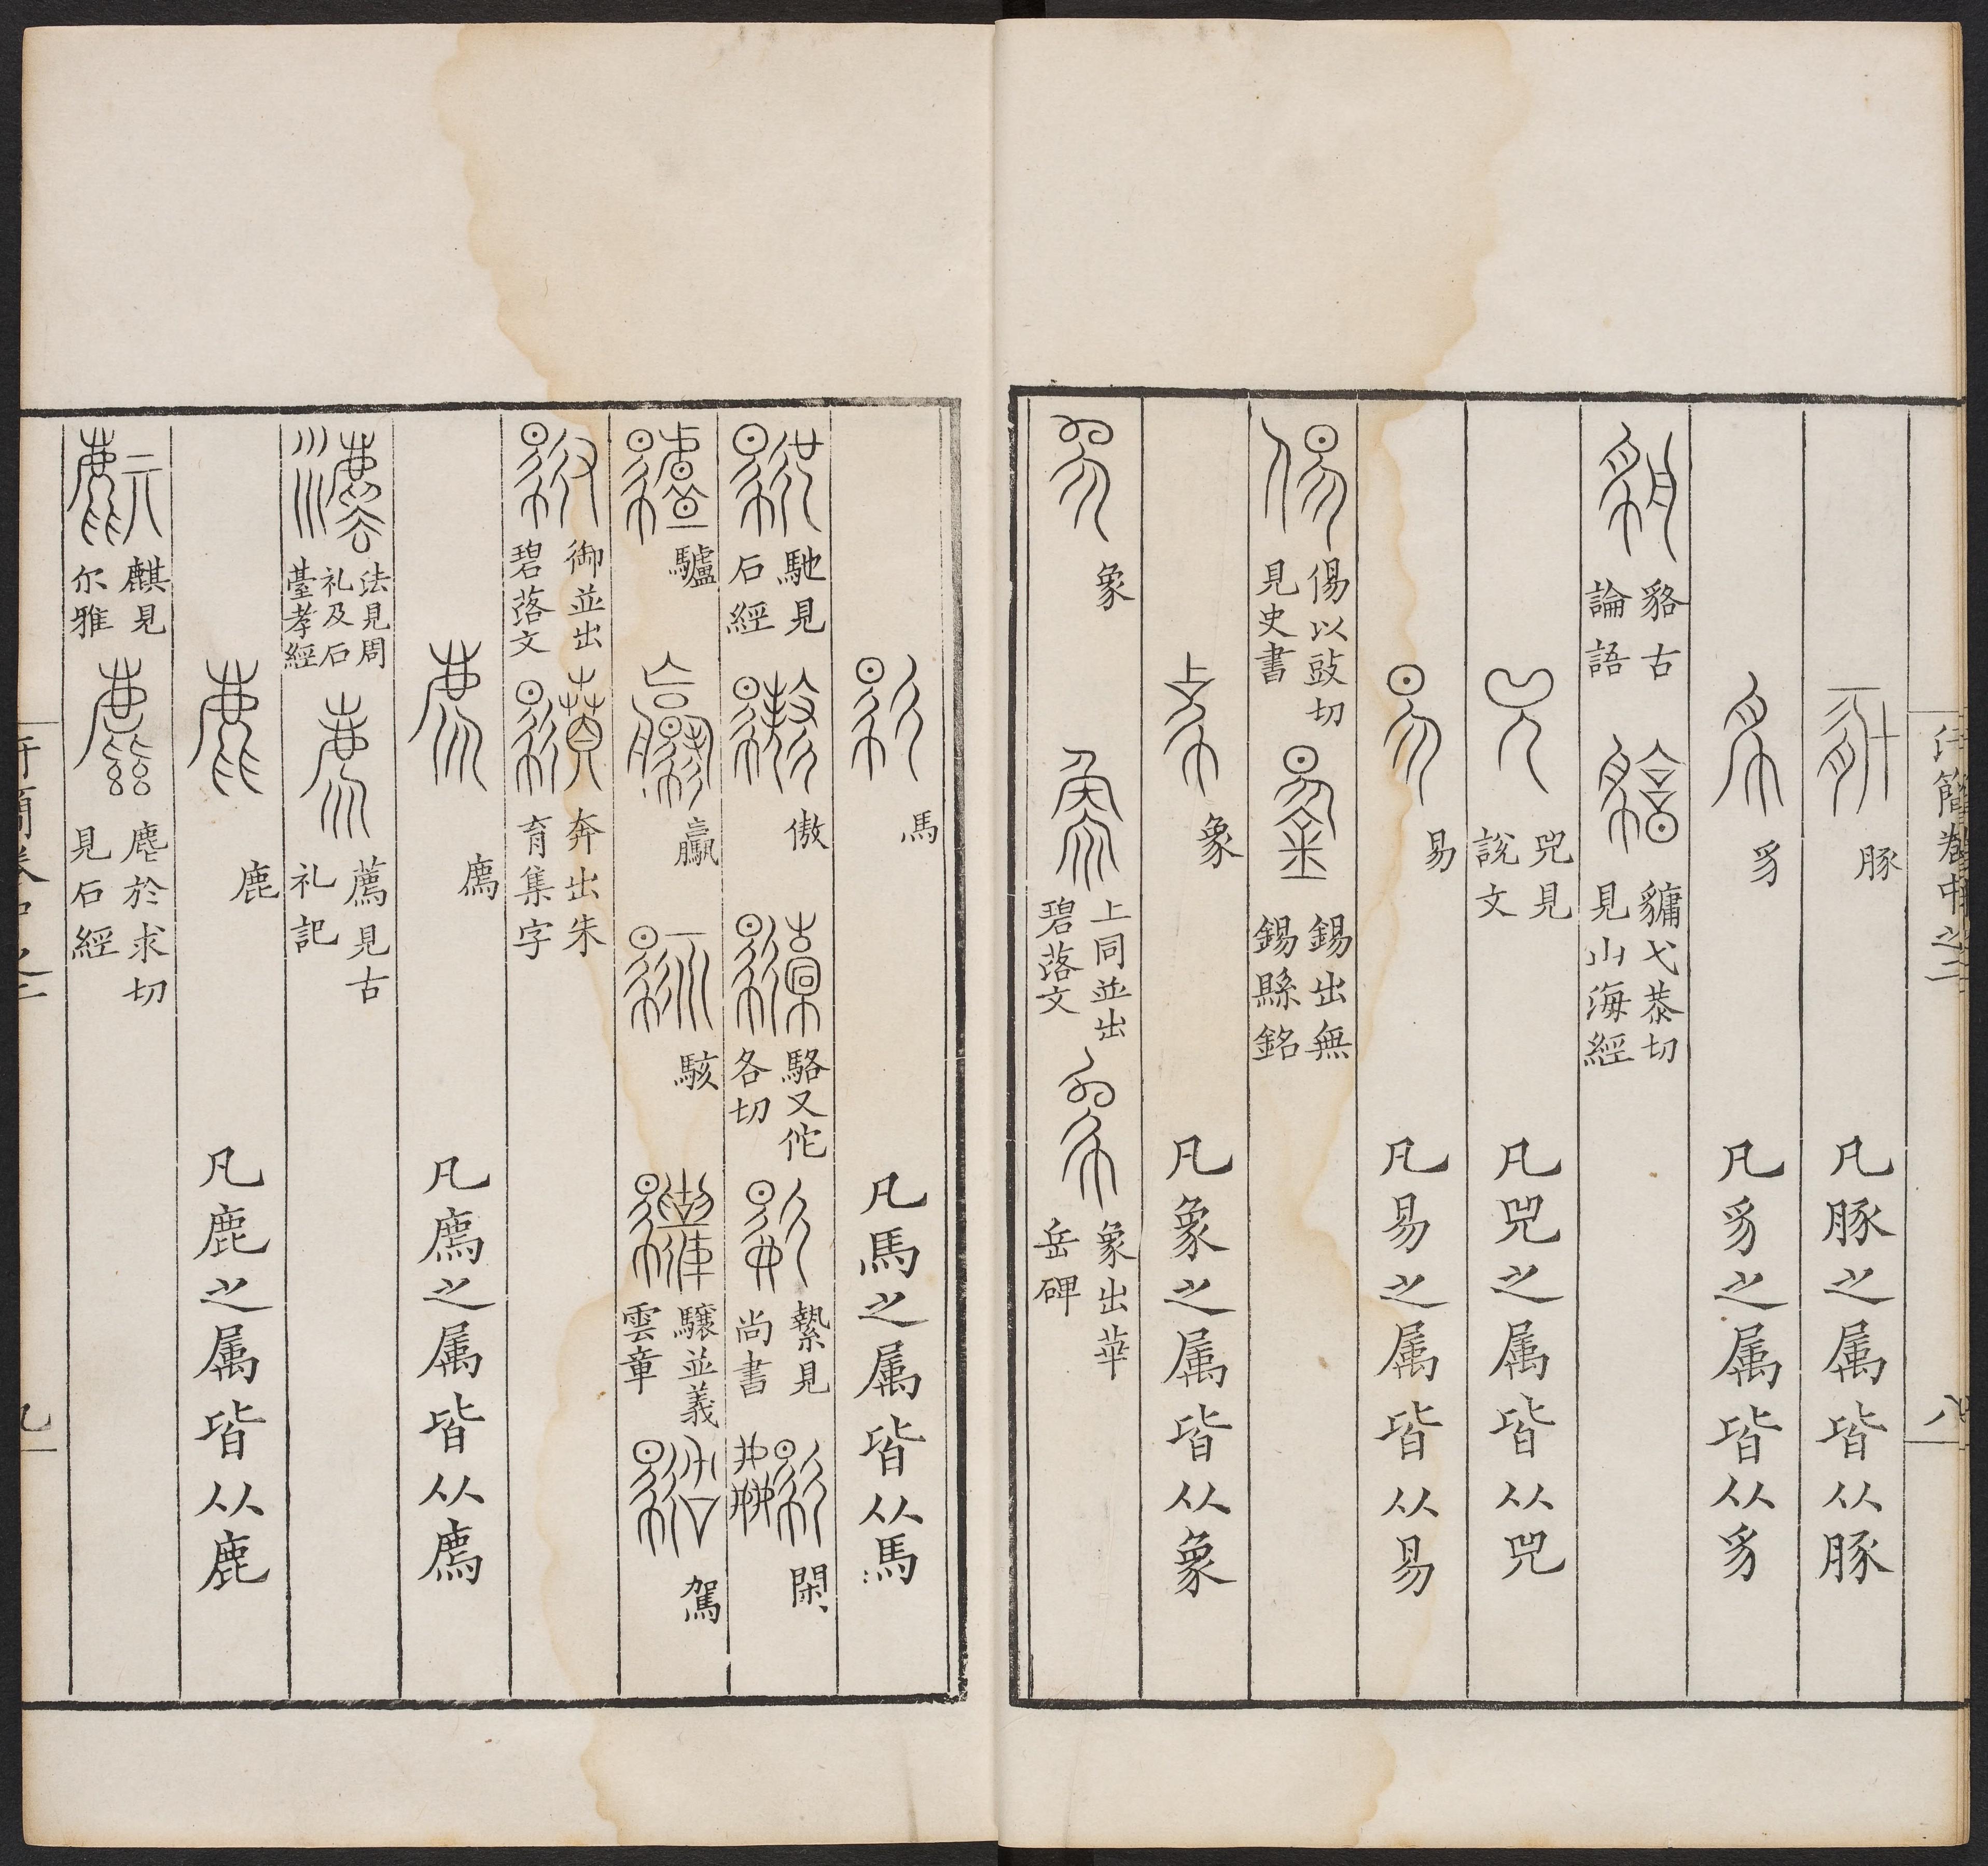 汗簡卷中之二 八
豚 凡豚之属皆从豚
豸 凡豸之属皆从豸
貉古論語 䝤弋恭切見山海經
兕見說文 凡兕之属皆从兕
易 凡易之属皆从易
傷以豉切見史書 錫出無錫縣銘
象 凡象之属皆从象
象 上同並出碧落文 象出華岳碑
馬 凡馬之属皆从馬
馳見石經 傲 駱又佗各切 縶見尚書 閑
驢 驘 駭 驤並義雲章 駕
御並出碧落文 奔出朱育集字
廌 凡廌之属皆从廌
法見周礼及石臺孝經 薦見古礼記
鹿 凡鹿之属皆从鹿
麒見尔雅 麀於求切見石經
九